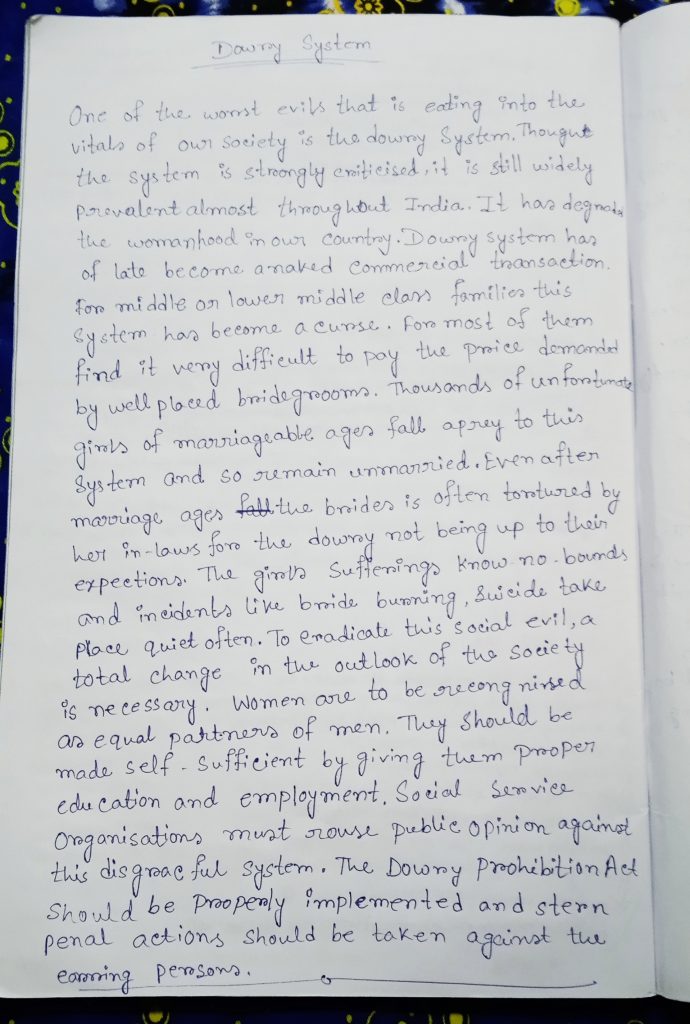 Dowry System
One of the worst evils that is eating into the
vitals of our society is the dowry System. Thought
the system is strongly criticised, it is still widely
prevalent almost throughout India. It has degraded
the womanhood in our country. Dowry system has
of late become a naked commercial transaction.
For middle or lower middle class families this
System has become a curse. For most of them
find it very difficult to pay the price demanded
by well placed bridegrooms. Thousands of unfortunate
girls of marriageable ages fall a prey to this
System and so remain unmarried. Even after
marriage ages fall the brides is often tortured by
her in-laws for the dowry not being up to their
expections. The girls Sufferings know no bounds
and incidents like bride burning, Suicide take
place quiet often. To eradicate this social evil, a
total change in the outlook of the society
is necessary. Women are to be recongnised
as equal partners of men. They should be
made self-sufficient by giving them proper
education and employment. Social Service
Organisations must rouse public opinion against
this disgraceful system. The Dowry Prohibition Act
Should be properly implemented and stern
penal actions should be taken against the
earring persons.